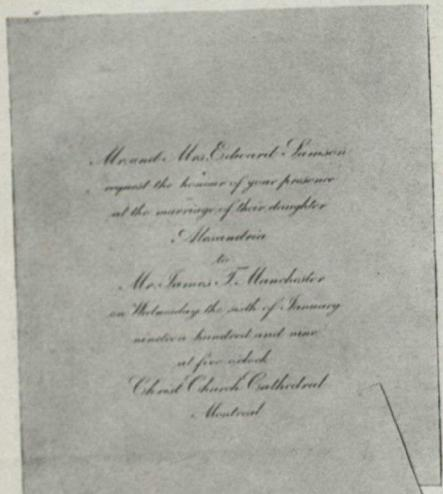 Mr. and Mrs. Edward Samson
request the honour of your presence
at the marriage of their daughter
Alexandria
to
Mr. James T. Manchester
on Wednesday the sixth of January
nineteen hundred and nine
at five o'clock
Christ Church Cathedral
Montreal